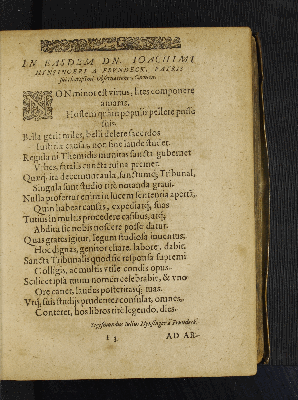 IN EASDEM DN. IOACHIMI
MYNSINGERI A FRVNDECK, PATRIS
sui charissimi Obseruationes, Carmen.
NON minor est virtus, lites componere
amaras,
Hostem quàm populis pellere posse
suis.
Bella gerit miles, bella delere sacerdos
Iustitiæ causas, non sine laude studet.
Regida ni Themidis munitas sancta gubernet
Vrbes, fatalis cuncta ruina premet.
Quæq; ita decreuit aula, sanctumq; Tribunal,
Singula sunt studio ritè notanda graui.
Nulla profertur enim in lucem sententia aperta,
Quin habeat causas, expediatq; suas
Tutius in multis procedere casibus, atq;
Abdita sic nobis noscere posse datur.
Quas grates igitur, legum studiosa iuuentus,
Hoc dignas, genitor chare, labore, dabit.
Sancta Tribunalis quod sic responsa supremi
Colligis, ac multis vtile condis opus.
Scilicet ipsa tuum nomen celebrabit, & vno
Ore canet, laudes posteritasq; tuas.
Vtq; suis studijs prudenter consulat, omnes
Conteret, hos libros ritè legendo, dies.
Sigismundus Iulius Mynsinger à Frundeck.
I 3 AD AR-